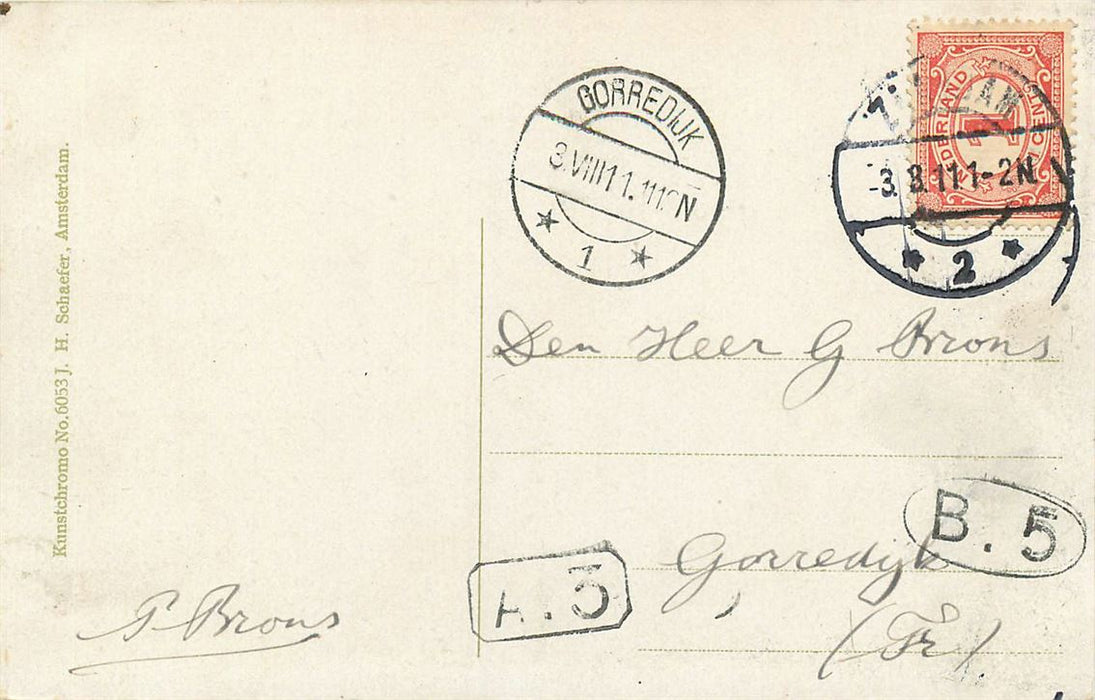 Kunstchromo No.6053 J. H. Schaefer, Amsterdam.
GORREDIJK
3.VIII 11.
N
1
NEDERLAND
1
CENT
AM
-3.8.11 1-2N
2
Den Heer G Brons
Gorredijk
(Fr)
B.5
A.5
P Brons